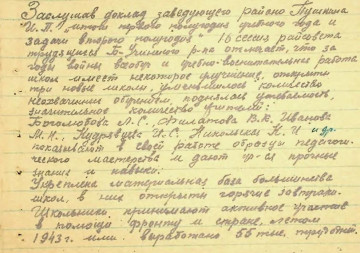 Заслушав доклад заведующего районо Пушкина
И.П. "Итоги первого полугодия учебного года и
задачи второго полугодия" 16 сессия райсовета
трудящихся р-на отмечает, что за
годы войны всеобуч и учебно-воспитательная работа
школ имеет некоторое улучшение, открыты
три новые школы, уменьшилось количество
неохваченных обучением, поднялась успеваемость,
значительное количество учителей:
Боголюбова М.С., Филатова В.К. Иванова
М.Н., Кудрявцева И.С. Никольская К.И. и др.
показывают в своей работе образцы педагоги-
ческого мастерства и дают уч-ся прочные
знания и навыки.
Укреплена материальная база большинства
школ, в них открыты горячие завтраки.
Школьники, принимают активное участие
в помощи фронту и стране, летом
1943 г. ими выработано 55 тыс. трудодней.